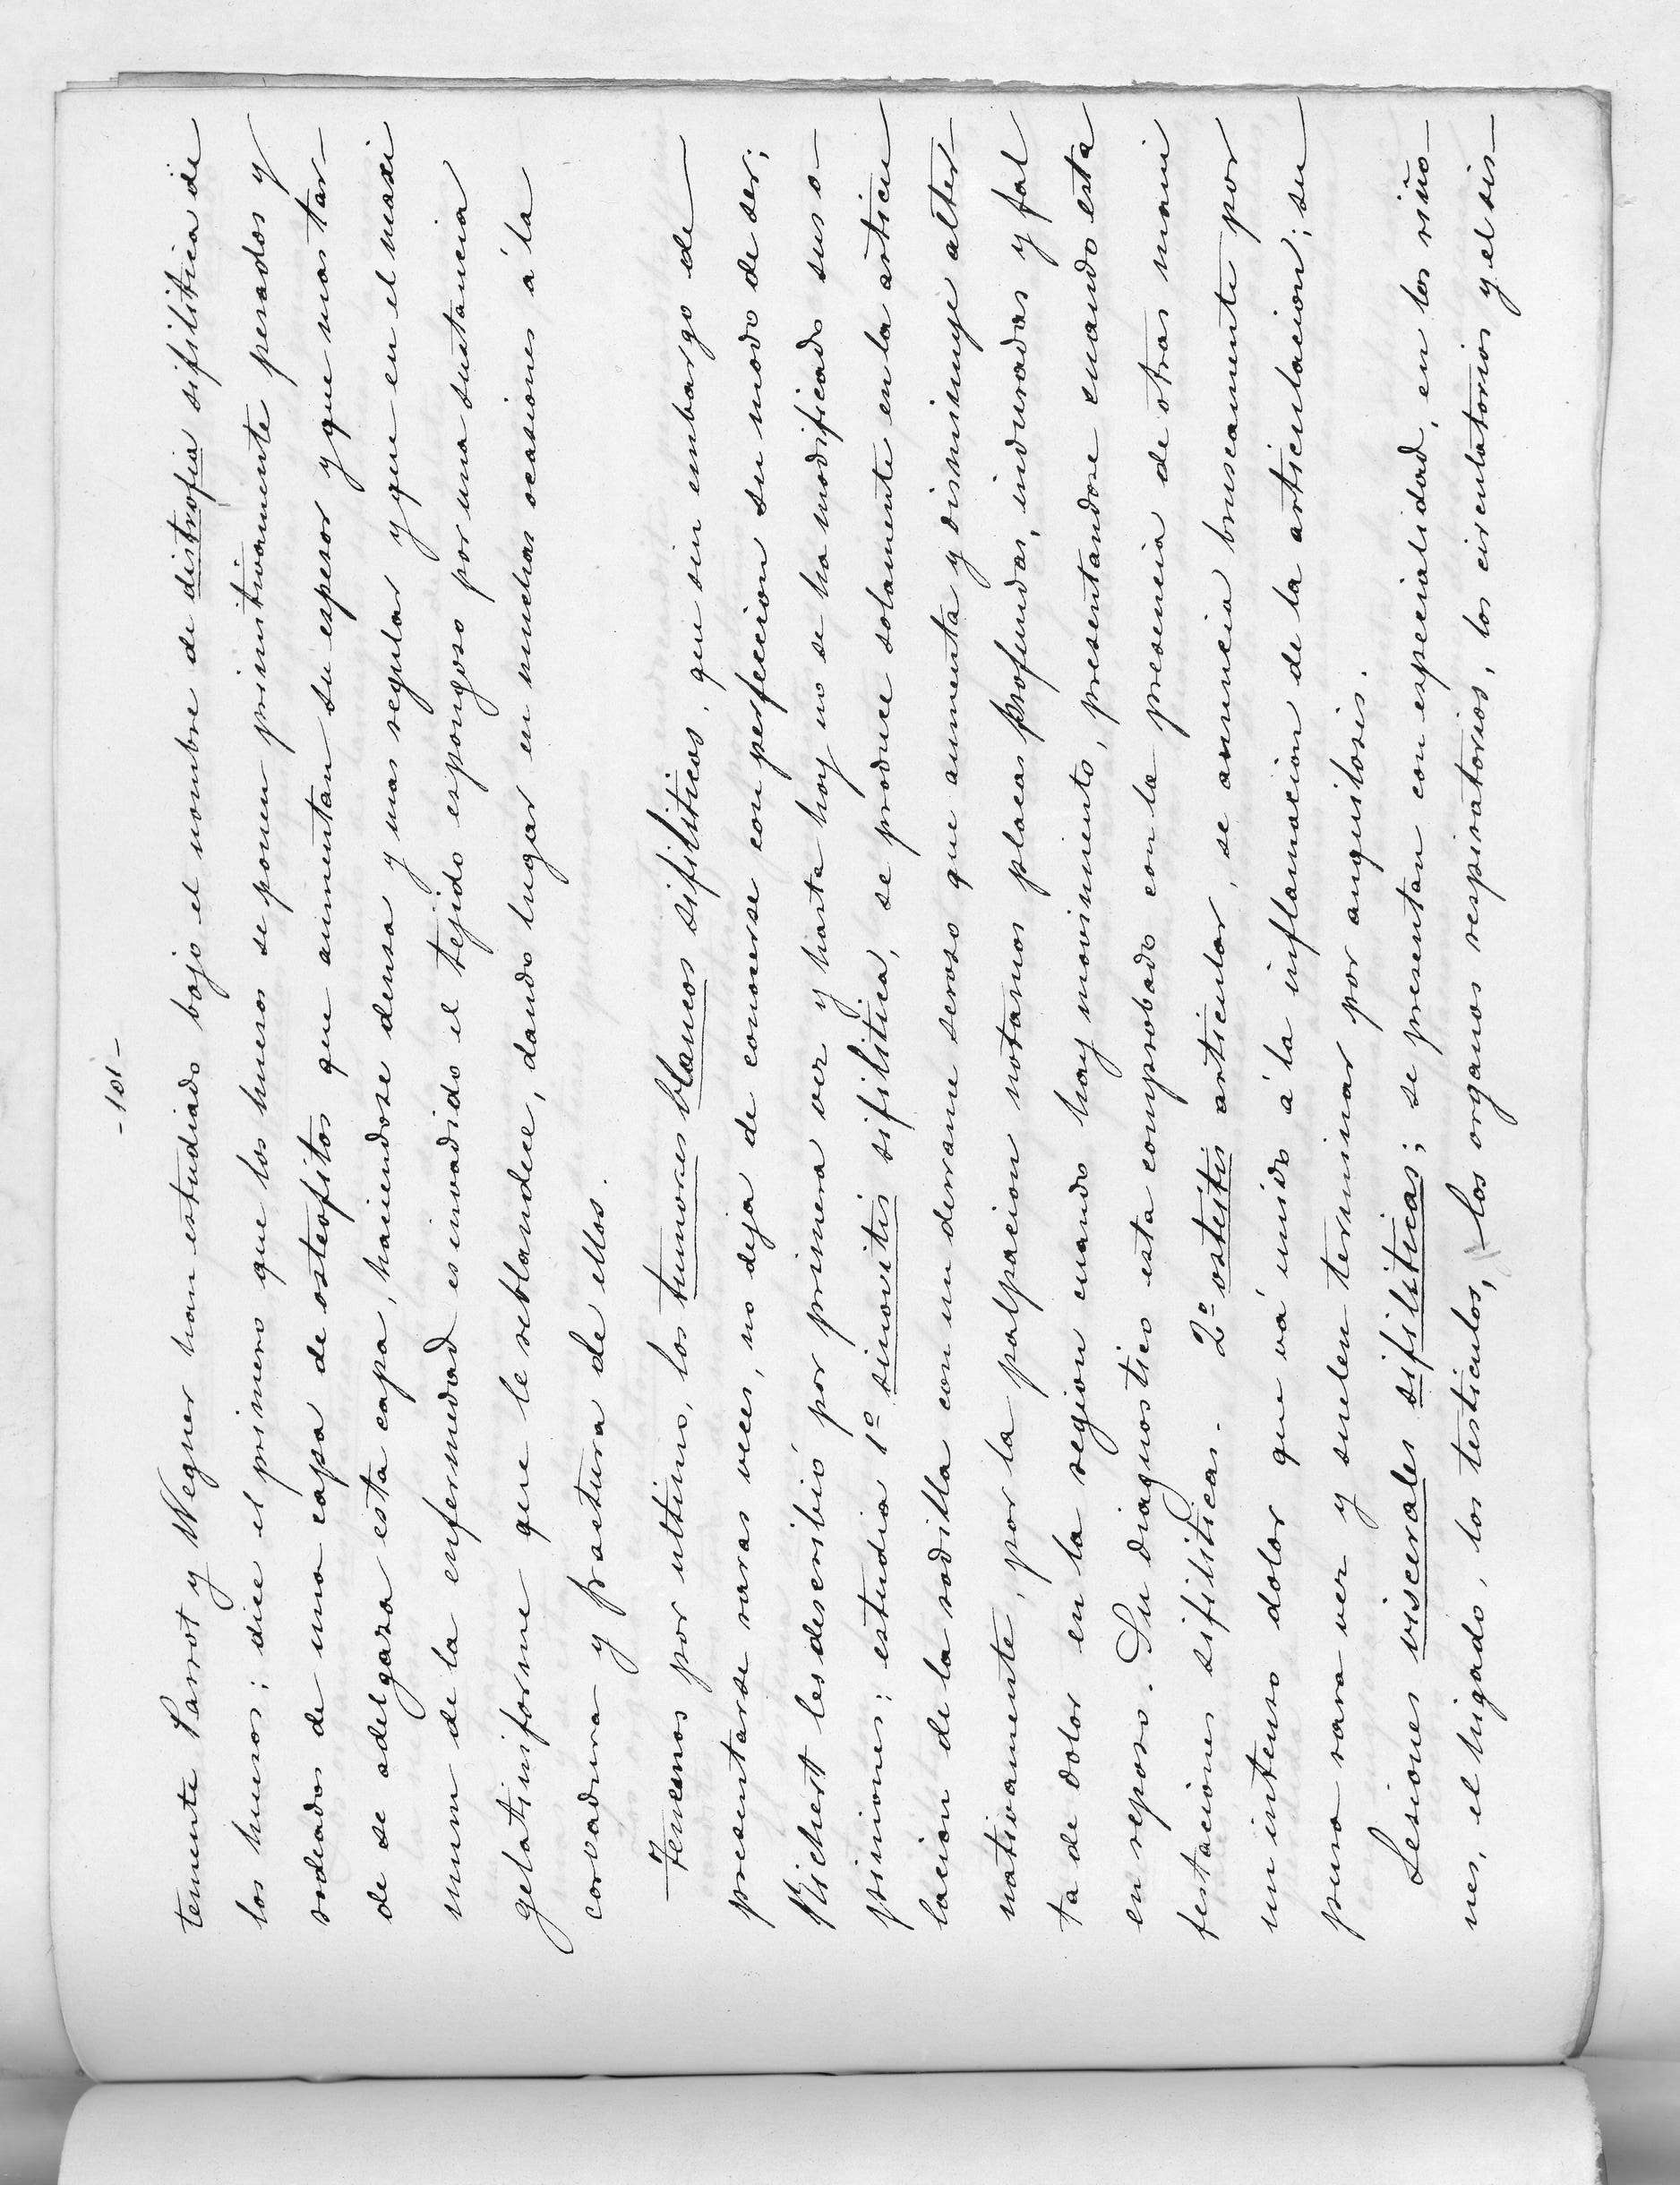 -101-
temente Parrot y Wegner han estudiado bajo el nombre de distrofia sifilitica de
los huesos; dice el primero que los huesos se ponen primitivamente pesados y
rodeados de una capa de osteofitos que aumentan su espesor y que mas tar-
de se adelgaza esta capa, haciendose densa y mas regular y que en el maxi
mum de la enfermedad es invadido el tejido esponjoso por una sustancia
gelatiniforme que le reblandece, dando lugar en muchas ocasiones a la
corvadura y fractura de ellos.
Tenemos por ultimo, los tumores blancos sifiliticos, que sin embargo de
presentarse raras veces, no deja de conocerse con perfeccion su modo de ser;
Richert les describió por primera vez y hasta hoy no se ha modificado sus o-
piniones; estudia 1º sinovitis sifilitica, se produce solamente en la articu
lacion de la rodilla con un derrame seroso que aumenta y disminuye alter-
nativamente, por la palpacion notamos placas profundas, induradas y fal
ta de dolor en la region cuando hay movimiento, presentandose cuando esta
en reposo. Su diagnostico esta comprobado con la presencia de otras mani
festaciones sifiliticas. 2º osteitis articular, se anuncia bruscamente por
un intenso dolor que vá unido á la inflamacion de la articulacion; su
pura rara vez y suelen terminar por anquilosis.
Lesiones viscerales sifiliticas; se presentan con especialidad, en los riño-
nes, el higado, los testiculos, los organos respiratorios, los circulatorios y el sis-